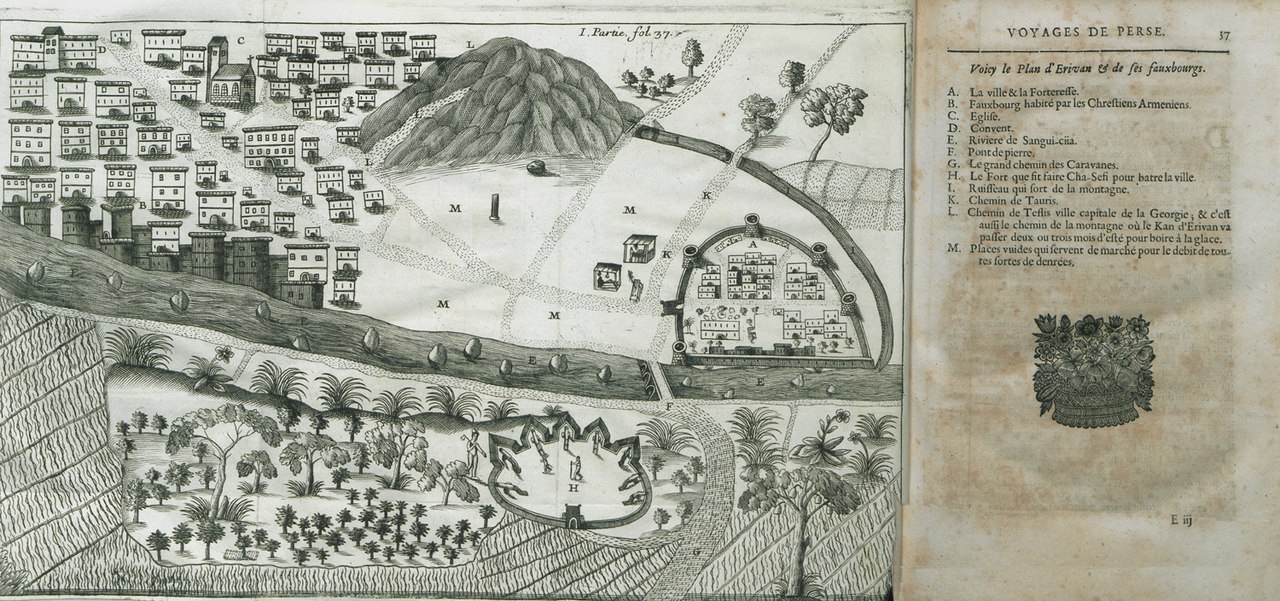 I. Partie. fol 37.
D
C
L
I
B
M
M
K
K
A
M
M
E
E
F
H
G
VOYAGES DE PERSE. 37
Voicy le Plan d'Erivan & de ſes fauxbourgs.
A. La ville & la Fortereſſe.
B. Fauxbourg habité par les Chreſtiens Armeniens.
C. Egliſe.
D. Convent.
E. Riviere de Sangui-ciia.
F. Pont de pierre.
G. Le grand chemin des Caravanes.
H. Le Fort que fit faire Cha-Sefi pour batre la ville.
I. Ruiſſeau qui ſort de la montagne.
K. Chemin de Tauris.
L. Chemin de Teflis ville capitale de la Georgie; & c'eſt
auſſi le chemin de la montagne où le Kan d'Erivan va
paſſer deux ou trois mois d'eſté pour boire à la glace.
M. Places vuides qui ſervent de marché pour le debit de tou-
tes ſortes de denrées.
E iij